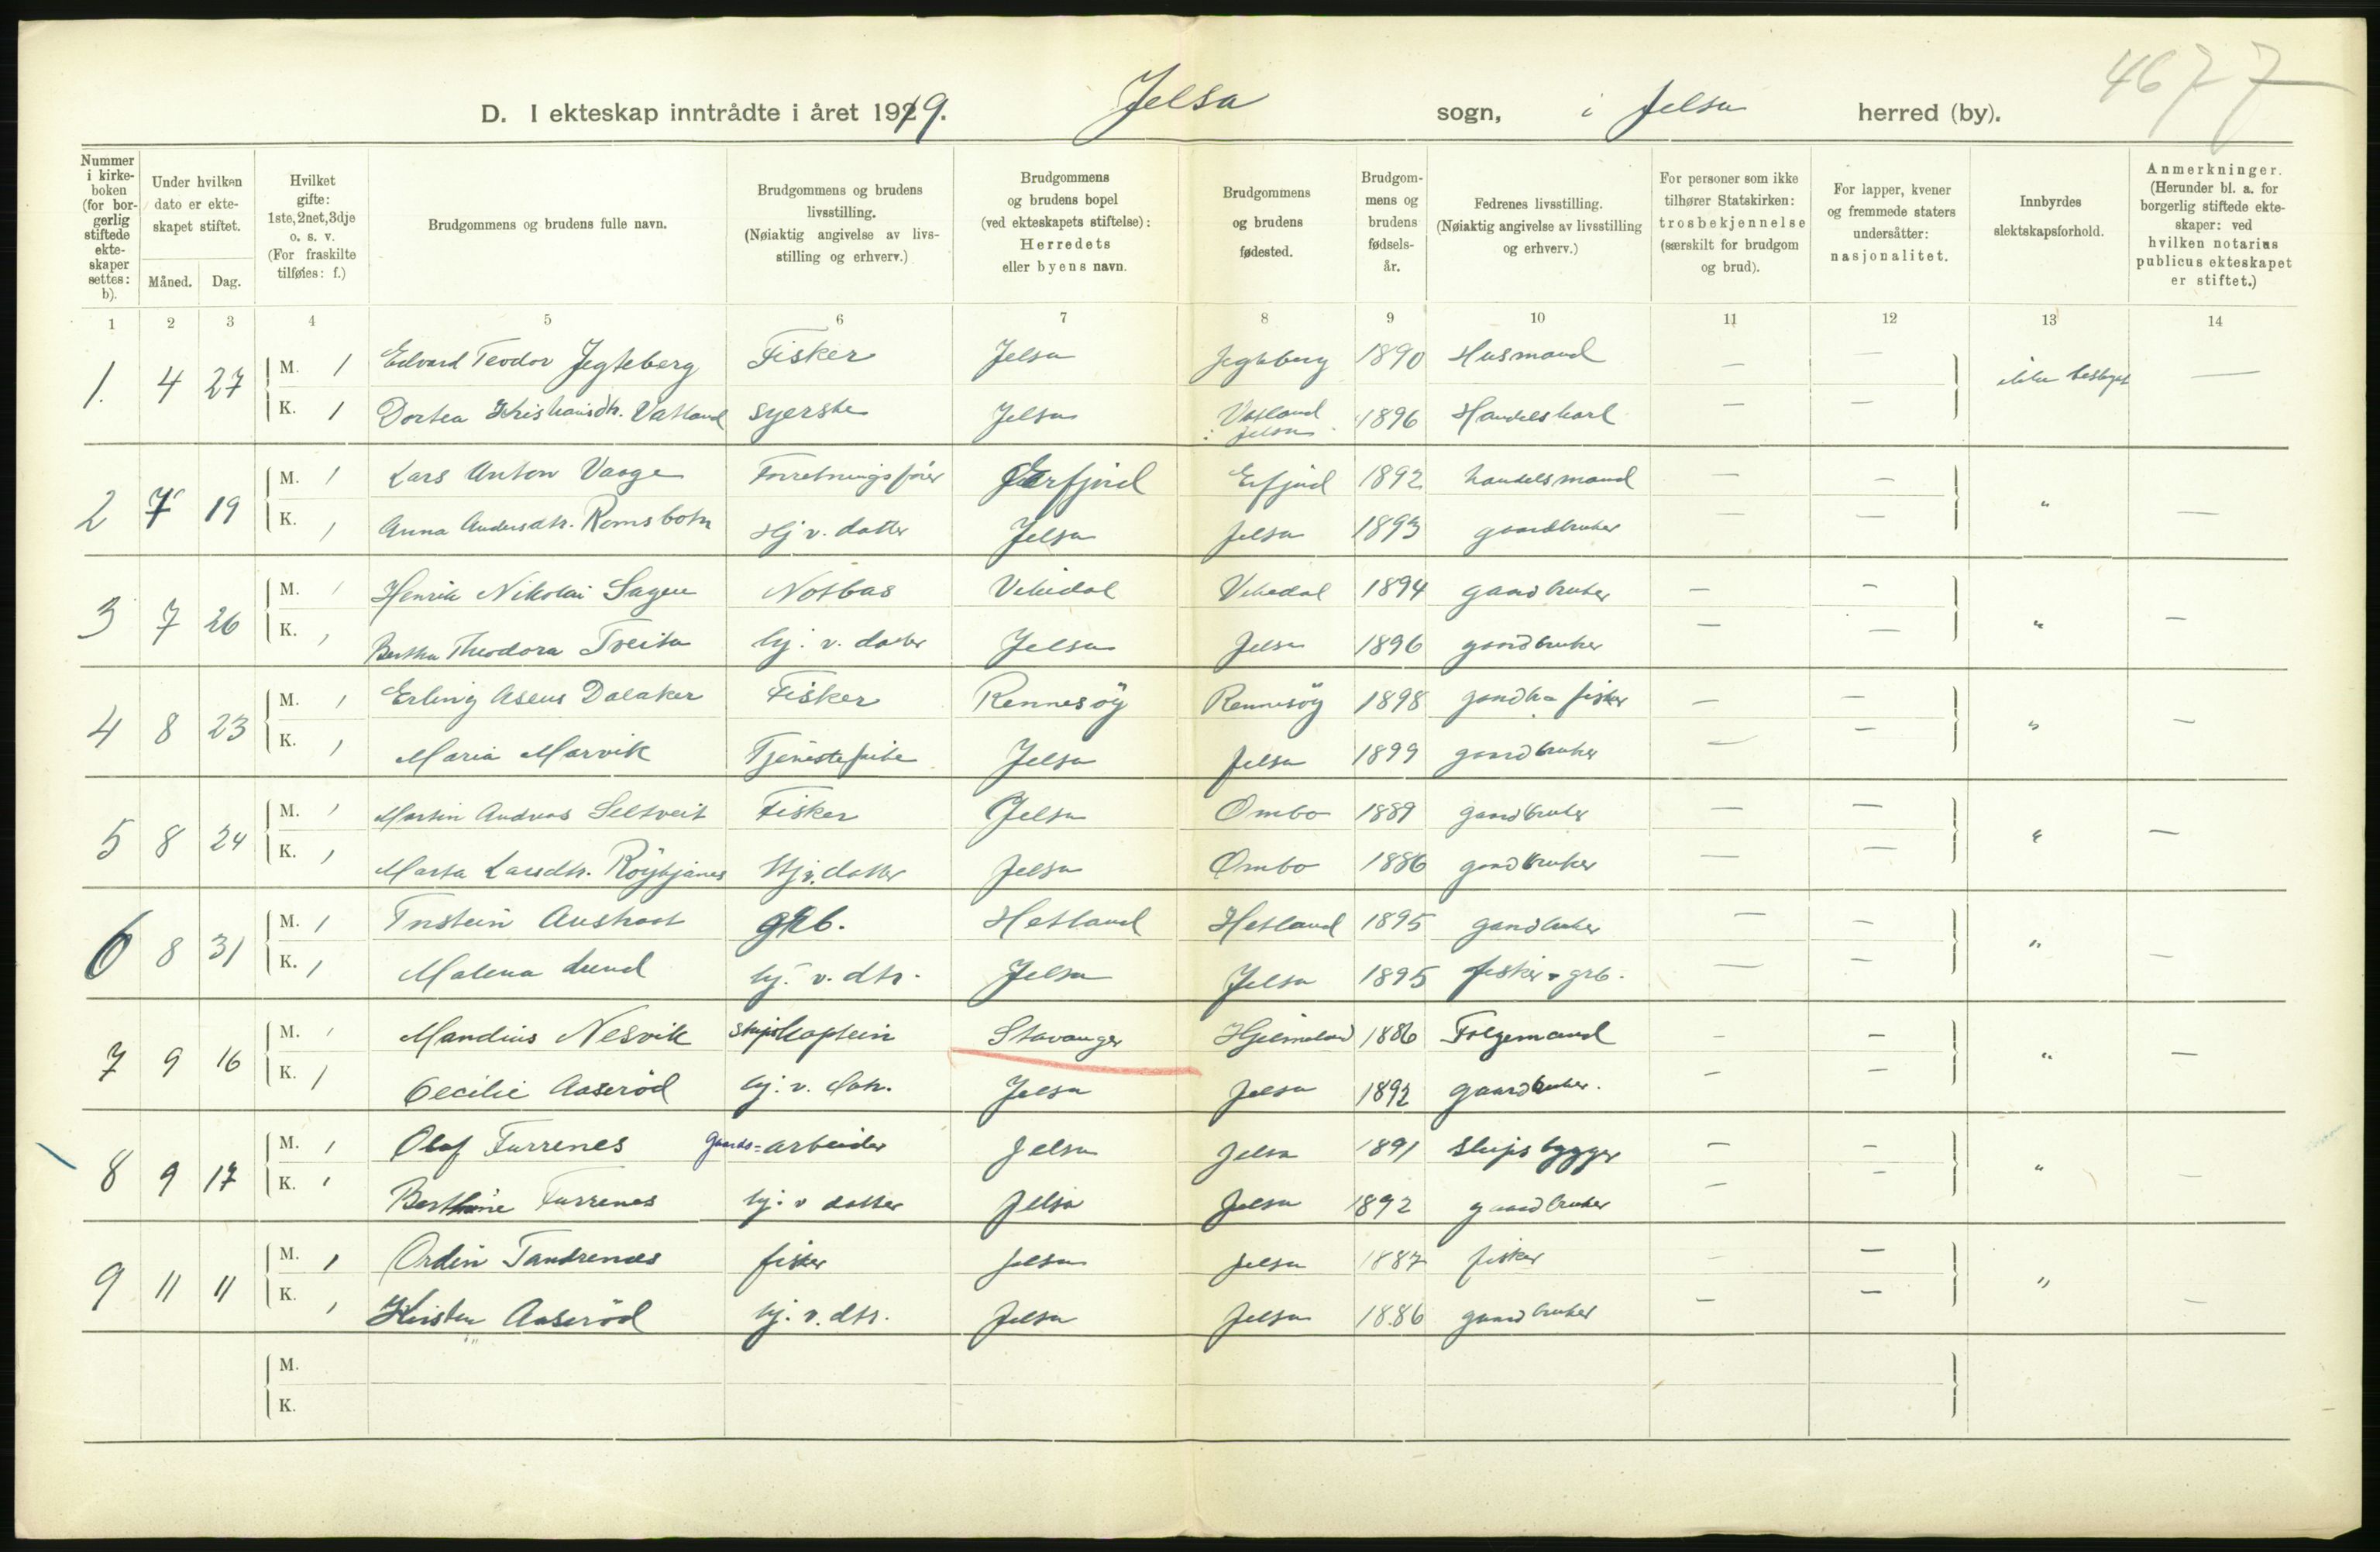 4677
D. I ekteskap inntrådte i året 1919. Jelsa sogn, i Jelsa herred (by).
Nummer i kirkeboken (for borgerlig stiftede ekteskaper settes: b).
Under hvilken dato er ekteskapet stiftet.
Måned. Dag.
Hvilket gifte: 1ste, 2net, 3dje o. s. v. (For fraskilte tilføies: f.)
Brudgommens og brudens fulle navn.
Brudgommens og brudens livsstilling. (Nøiaktig angivelse av livsstilling og erhverv.)
Brudgommens og brudens bopel (ved ekteskapets stiftelse): Herredets eller byens navn.
Brudgommens og brudens fødested.
Brudgommens og brudens fødselsår.
Fedrenes livsstilling. (Nøiaktig angivelse av livsstilling og erhverv.)
For personer som ikke tilhører Statskirken: trosbekjennelse (særskilt for brudgom og brud).
For lapper, kvener og fremmede staters undersåtter: nasjonalitet.
Innbyrdes slektskapsforhold.
Anmerkninger. (Herunder bl. a. for borgerlig stiftede ekteskaper: ved hvilken notarius publicus ekteskapet er stiftet.)
1 2 3 4 5 6 7 8 9 10 11 12 13 14
1. 4 27 M. 1 Edvard Teodor Jegteberg Fisker Jelsa Jegteberg 1890 Husmand — — ikke beslegt —
K. 1 Dortea Kristiansdtr. Vatland syerske Jelsa Vatland i Jelsa 1896 Handelskarl — —
2 7 19 M. 1 Lars Anton Vaage Forretningsfører Erfjord Erfjord 1892 handelsmand — — " —
K. 1 Anna Andersdtr. Ramsbotn Hj v. datter Jelsa Jelsa 1893 gaardbruker — —
3 7 26 M. 1 Henrik Nikolai Sagen Notbas Vikedal Vikedal 1894 gaardbruker — — " —
K. 1 Bertha Theodora Tveita hj. v. datter Jelsa Jelsa 1896 gaardbruker — —
4 8 23 M. 1 Erling Aseus Dalaker Fisker Rennesöy Rennesöy 1898 gaardb= fisker — — " —
K. 1 Maria Marvik Tjenestepike Jelsa Jelsa 1899 gaardbruker — —
5 8 24 M. 1 Martin Andreas Seltveit Fisker Jelsa Ombo 1889 gaardbruker — — " —
K. 1 Marta Larsdtr. Röykjanes Hj v. datter Jelsa Ombo 1886 gaardbruker — —
6 8 31 M. 1 Austraat grb. Hetland Hetland 1895 gaardbruker — — " —
K. 1 Malena Lund hj. v. dtr. Jelsa Jelsa 1895 fisker = grb. — —
7 9 16 M. 1 Mandius Nesvik skipskaptein Stavanger Hjelmeland 1886 Folgemand — — " —
K. 1 Cecilie Aaseröd hj. v. dtr. Jelsa Jelsa 1892 gaardbruker. — —
8 9 17 M. 1 Olaf Furrenes gaards=arbeider Jelsa Jelsa 1891 skipsbygger — — " —
K. 1 Berthine Furrenes hj. v datter Jelsa Jelsa 1892 gaardbruker — —
9 11 11 M. 1 Ordin Tandrenes fisker Jelsa Jelsa 1887 fisker — — " —
K. 1 Kirsten Aaseröd hj. v. dtr. Jelsa Jelsa 1886 gaardbruker — —
M.
K.